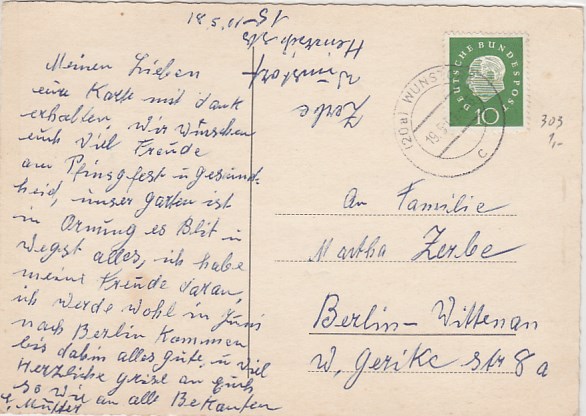 Meinen Lieben
eure Karte mit dank
erhalten wir wünschen
euch viel Freude
am Pfingsfest u gesund-
heid, unser garten ist
in Ornung es Blit u
wegst alles, ich habe
meine Freude daran,
ich werde wohl in Juni
nach Berlin kommen
bis dahin alles gute u viel
Herzliche grise an euch
so wie an alle Bekanten
Mutter
Zerbe
Wunstorf
15
DEUTSCHE BUNDESPOST
10
(20a) WUNST
c
303
1,-
An Familie
Martha Zerbe
Berlin-Wittenau
W, Gerike str 8a